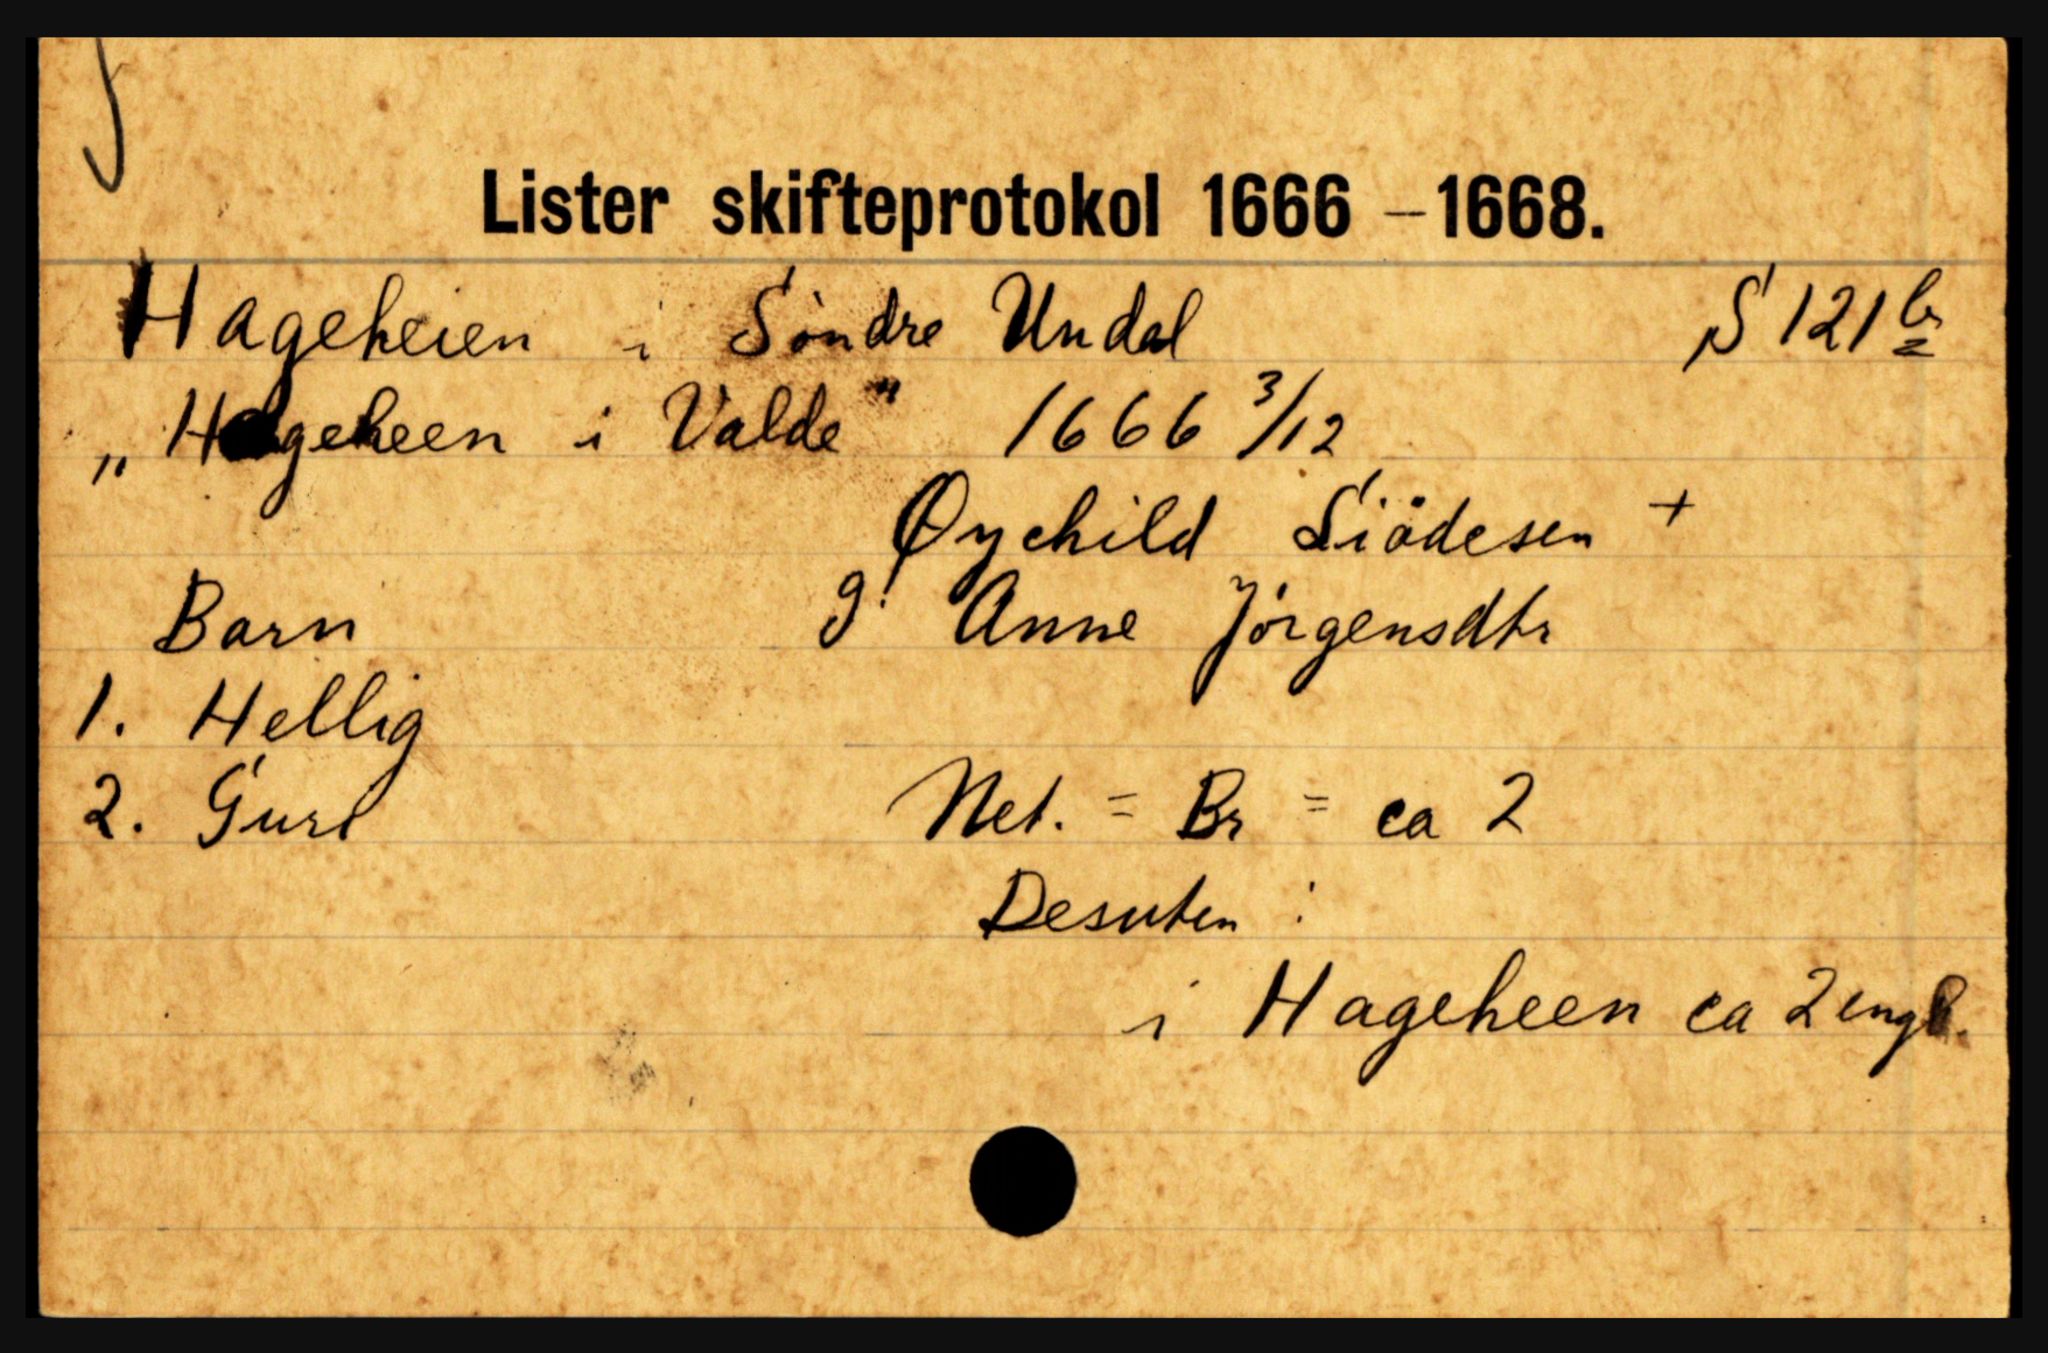 Lister skifteprotokol 1666 – 1668.
Hageheien i Söndre Undal S 121 b
„Hageheen i Valde" 1666 3/12
Øychild Siödesen +
Barn g. Anne Jörgensdtr
1. Hellig
2. Guri Net. = Br = ca 2
Desuten :
i Hageheen ca 2 engl.